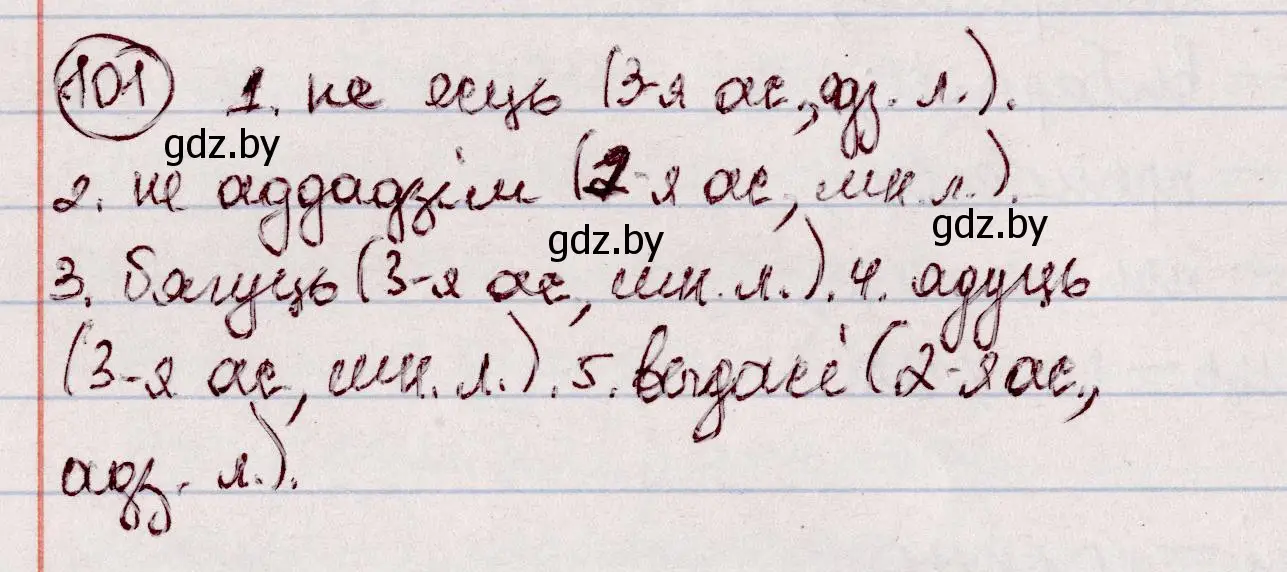 101 1. не есць (3-я ас., адз. л.).
gdz.by
2. не аддадзім (1-я ас, мн. л.).
gdz.by gdz.by
3. бягуць (3-я ас, мн. л.). 4. ядуць
(3-я ас, мн. л.). 5. выдасі (2-я ас.,
адз. л.).